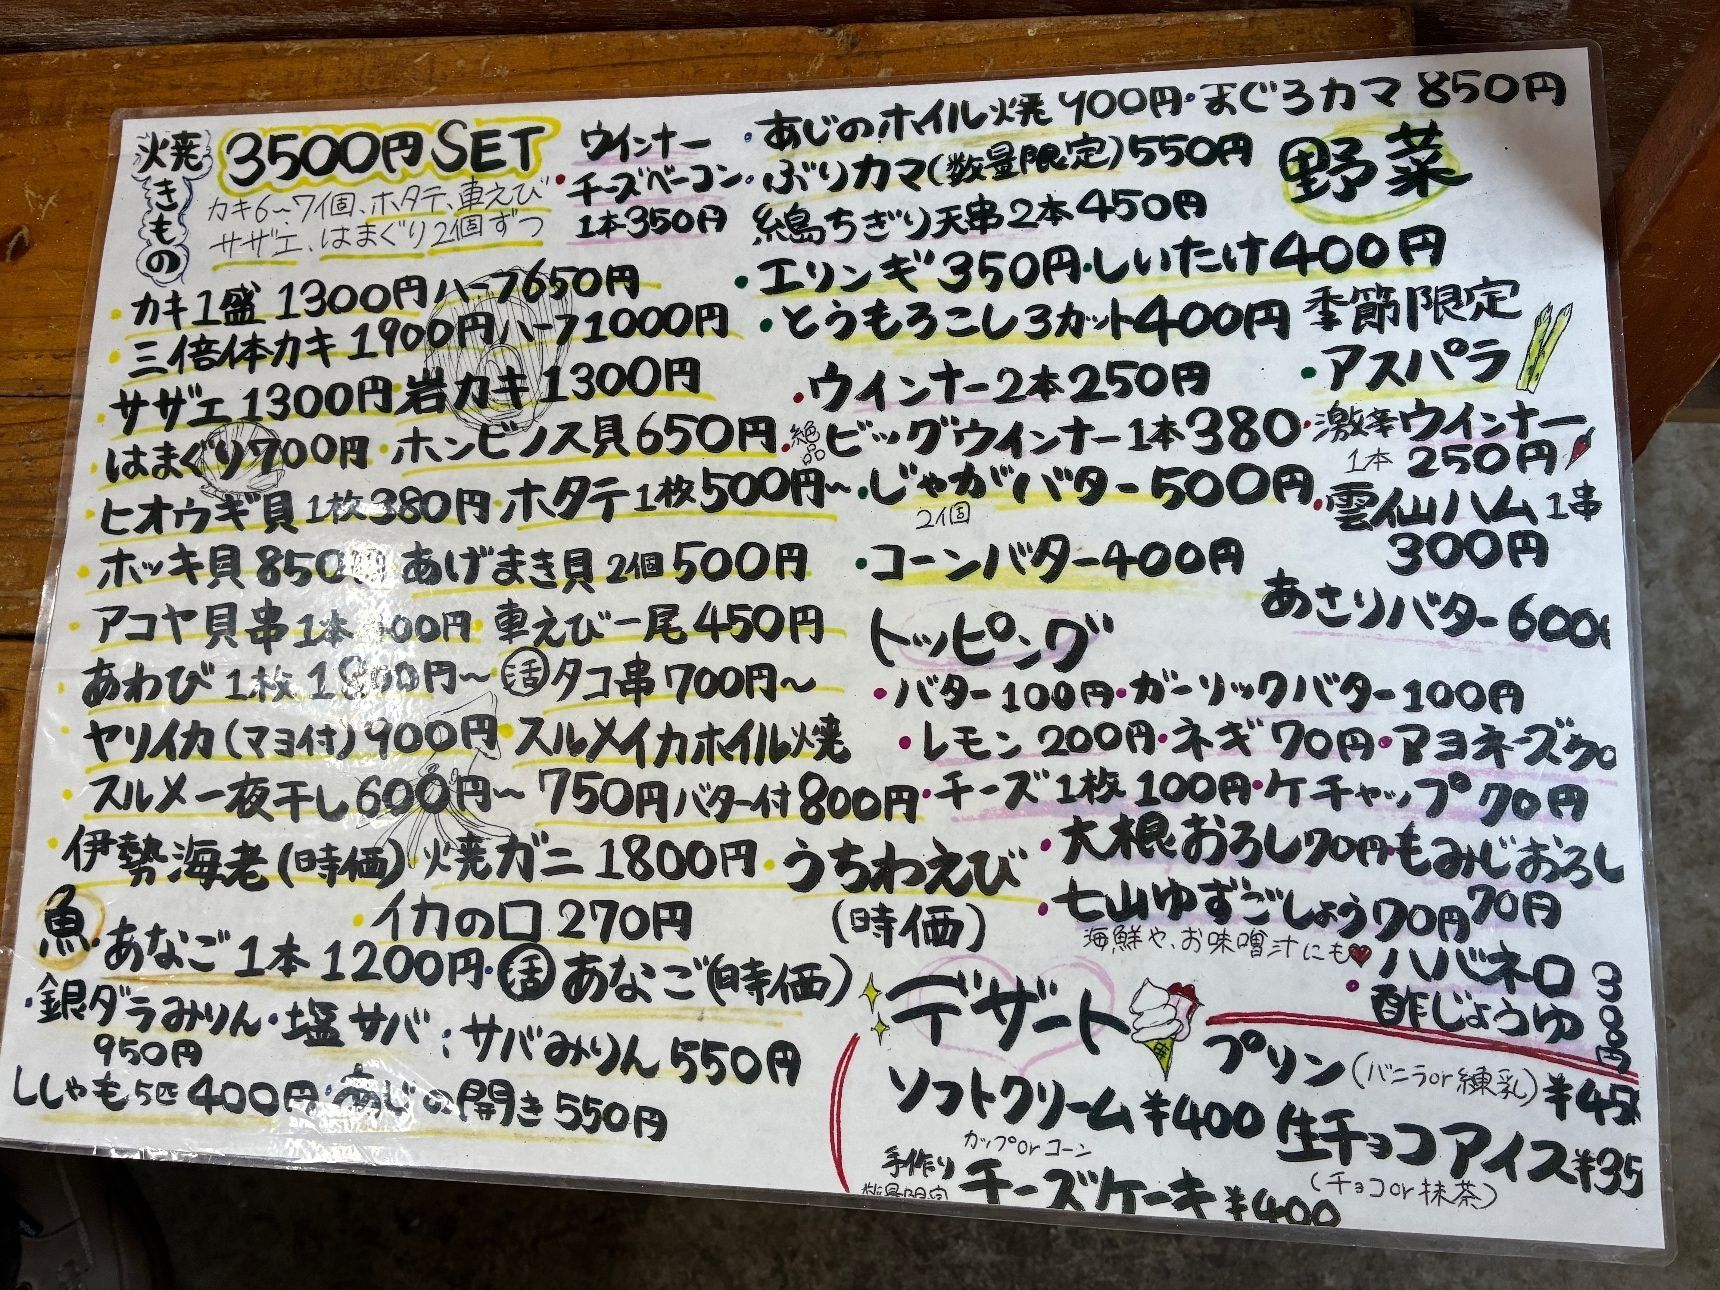 焼きもの
3500円SET
カキ6〜7個、ホタテ、車えび
サザエ、はまぐり2個ずつ
ウインナー
チーズベーコン
1本350円
カキ1盛 1300円ハーフ650円
三倍体カキ 1900円ハーフ1000円
サザエ1300円 岩カキ1300円
はまぐり700円 ホンビノス貝650円
ヒオウギ貝1枚380円 ホタテ1枚500円〜
ホッキ貝850円 あげまき貝2個500円
アコヤ貝串1本 車えび一尾450円
あわび1枚 活タコ串700円〜
ヤリイカ(マヨ付)900円 スルメイカホイル焼
スルメ一夜干し600円〜 750円バター付800円
伊勢海老(時価) 焼ガニ1800円 うちわえび
(時価)
イカの口270円
魚
あなご1本1200円 活あなご(時価)
銀ダラみりん 塩サバ サバみりん550円
950円
ししゃも5匹400円 あじの開き550円
あじのホイル焼 まぐろカマ850円
ぶりカマ(数量限定)550円
糸島ちぎり天串2本450円
野菜
エリンギ350円 しいたけ400円
とうもろこし3カット400円
季節限定
アスパラ
ウインナー2本250円
絶品 ビッグウインナー1本380
激辛ウインナー
1本250円
じゃがバター500円
2個
雲仙ハム1串
300円
コーンバター400円
あさりバター600
トッピング
バター100円 ガーリックバター100円
レモン200円 ネギ70円 マヨネーズ70
チーズ1枚100円 ケチャップ70円
大根おろし70円 もみじおろし
70円
七山ゆずごしょう70円
海鮮や、お味噌汁にも♥
ハバネロ
酢じょうゆ
300円
デザート
プリン(バニラor練乳)¥45
ソフトクリーム¥400
カップorコーン
生チョコアイス¥35
(チョコor抹茶)
手作り
数量限定
チーズケーキ¥400